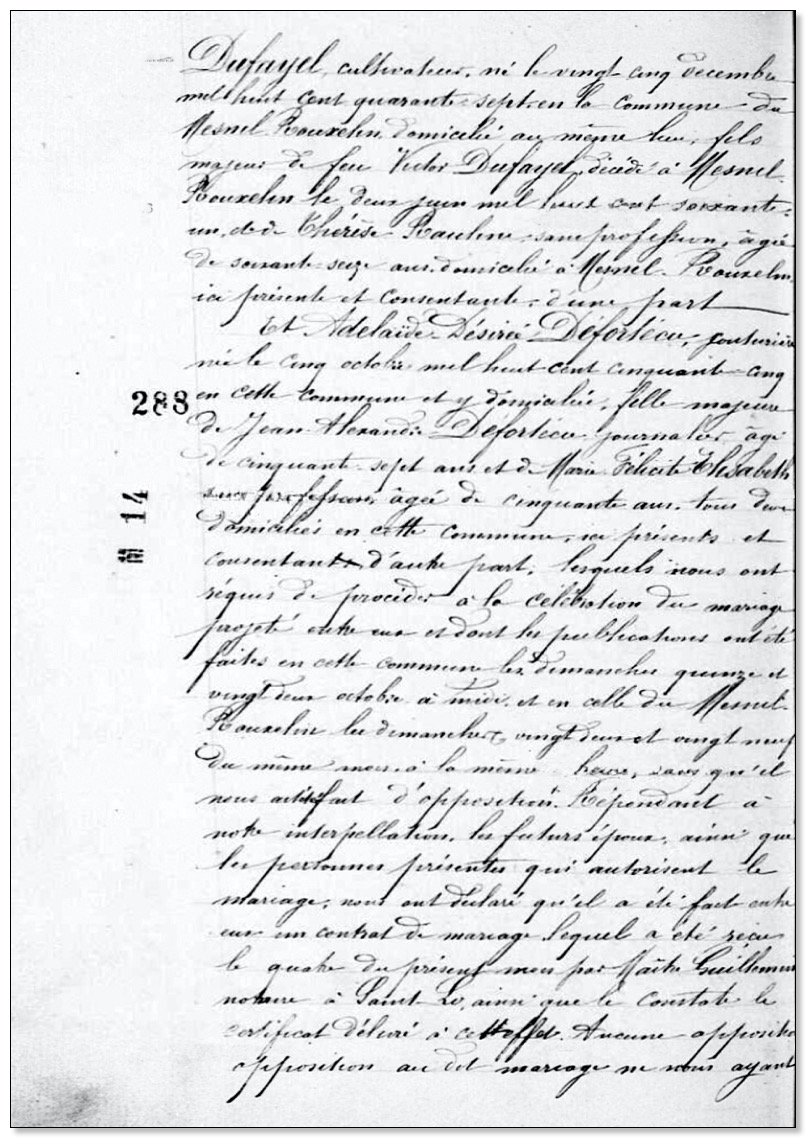 Dufayel, cultivateur, né le vingt cinq décembre
mil huit cent quarante-sept, en la commune du
Mesnil-Rouxelin, domicilié au même lieu, fils
majeur de feu Victor Dufayel, décédé à Mesnil-
Rouxelin le deux juin mil huit cent soixante-
un, et de Thérèse Rauline, sans profession, âgée
de soixante-seize ans, domicilié à Mesnil-Rouxelin,
ici présente et consentante, d'une part
Et Adelaïde Désirée Défortécu, couturière
née le cinq octobre mil huit cent cinquante-cinq
288
en cette commune et y domiciliée, fille majeure
de Jean Alexandre Défortécu journalier, âgé
de cinquante-sept ans et de Marie Félicité Elisabeth
sans profession, âgée de cinquante ans, tous deux
14
domiciliés en cette commune, ici présents et
consentants, d'autre part, lesquels nous ont
réquis de procéder à la célébration du mariage
projeté entre eux et dont les publications ont été
faites en cette commune les dimanches quinze et
vingt deux octobre à midi, et en celle du Mesnil-
Rouxelin les dimanches vingt deux et vingt neuf
du même mois à la même heure, sans qu'il
nous ait été fait d'opposition. Répondant à
notre interpellation, les futurs époux, ainsi que
les personnes présentes qui autorisent le
mariage, nous ont déclaré qu'il a été fait entre
eux un contrat de mariage lequel a été reçu
le quatre du présent mois par Maître Guillemin
notaire à Saint-Lo, ainsi que le constate le
certificat délivré à cet effet. Aucune opposition
opposition au dit mariage ne nous ayant